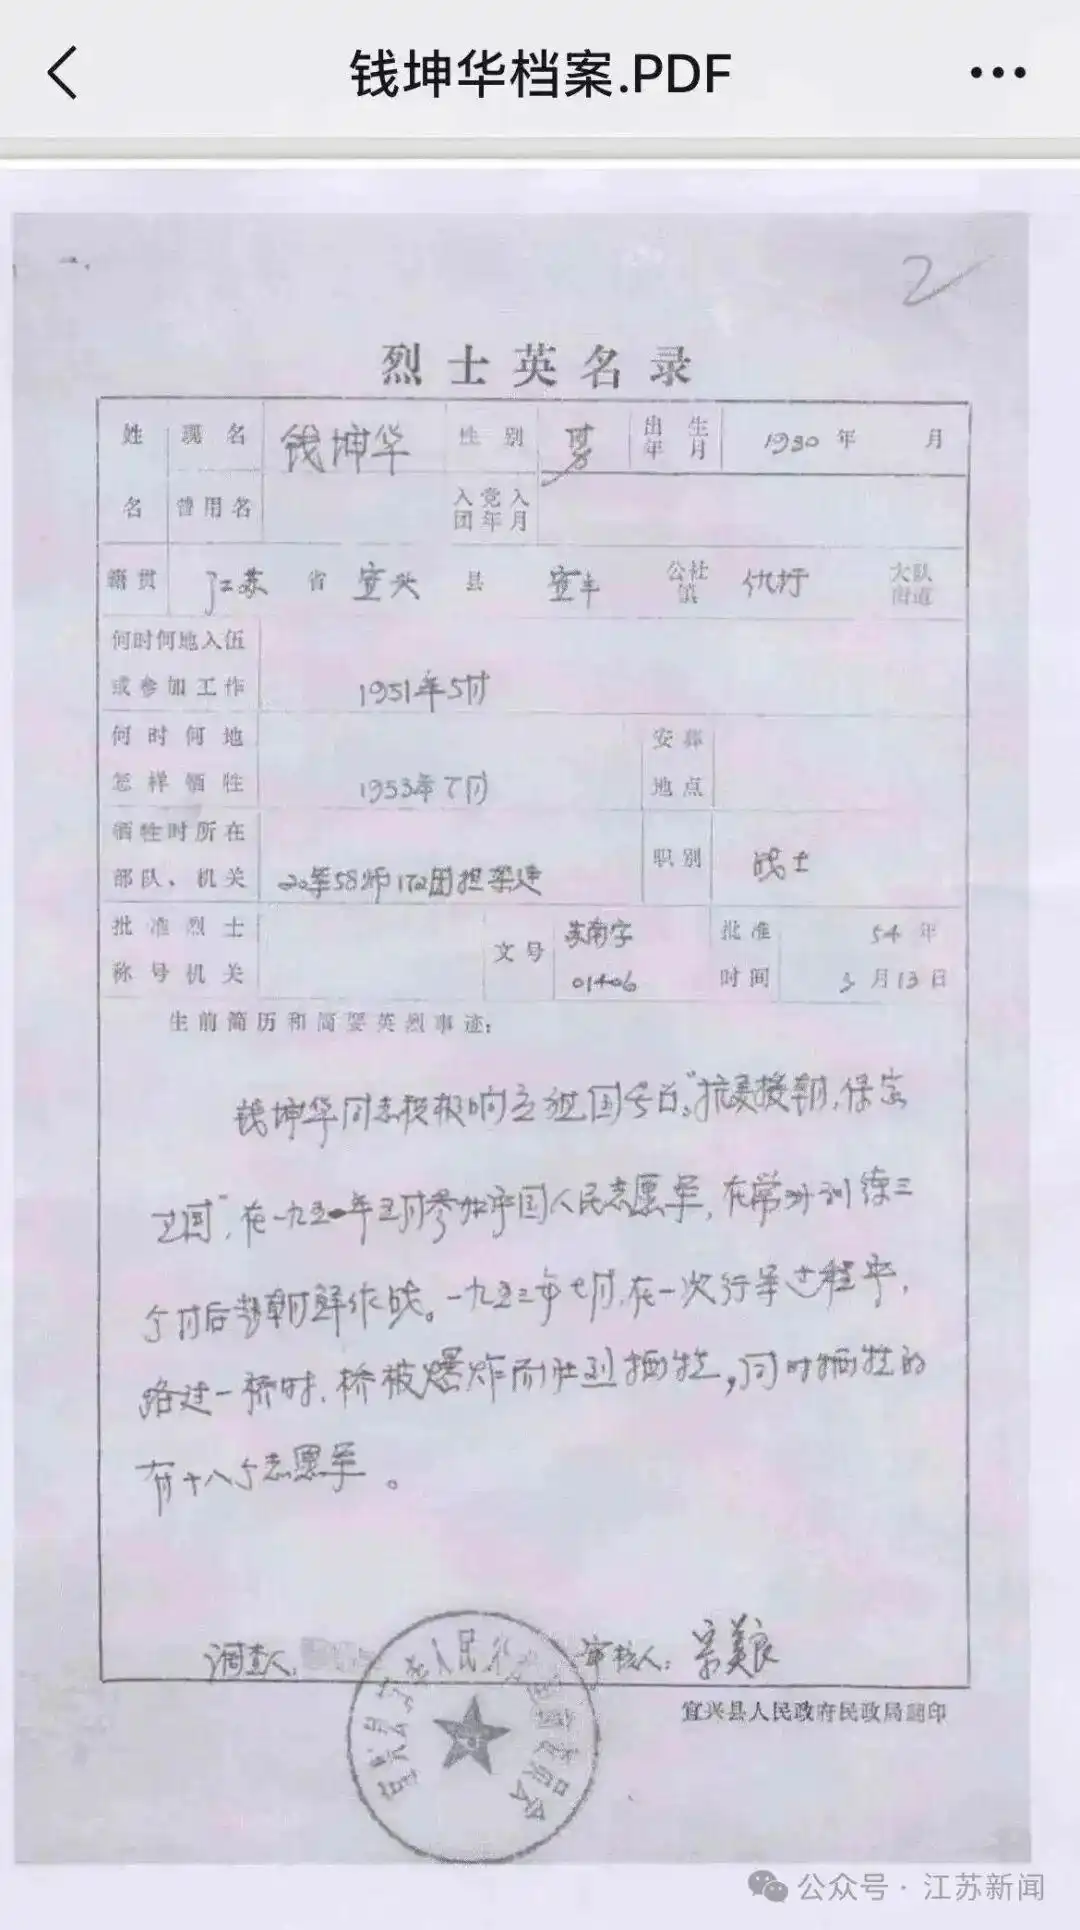 钱坤华档案.PDF
2
烈士英名录
姓名 现名 钱坤华 性别 男 出生年月 1930年 月
曾用名 入党入团年月
籍贯 江苏 省 宜兴 县 宜丰 公社镇 仇圩 大队街道
何时何地入伍或参加工作 1951年5月
何时何地怎样牺牲 1953年7月 安葬地点
牺牲时所在部队、机关 20军58师172团担架连 职别 战士
批准烈士称号机关 文号 苏南字01406 批准时间 54年3月13日
生前简历和简要英烈事迹:
钱坤华同志积极响应祖国号召。"抗美援朝,保家
卫国",在一九五一年五月参加中国人民志愿军,在常州训练三
个月后赴朝鲜作战。一九五三年七月,在一次行军过程中,
路过一桥时,桥被爆炸而壮烈牺牲,同时牺牲的
有十八个志愿军。
调查人: 审核人: 宗美良
宜兴县人民政府民政局翻印
公众号·江苏新闻